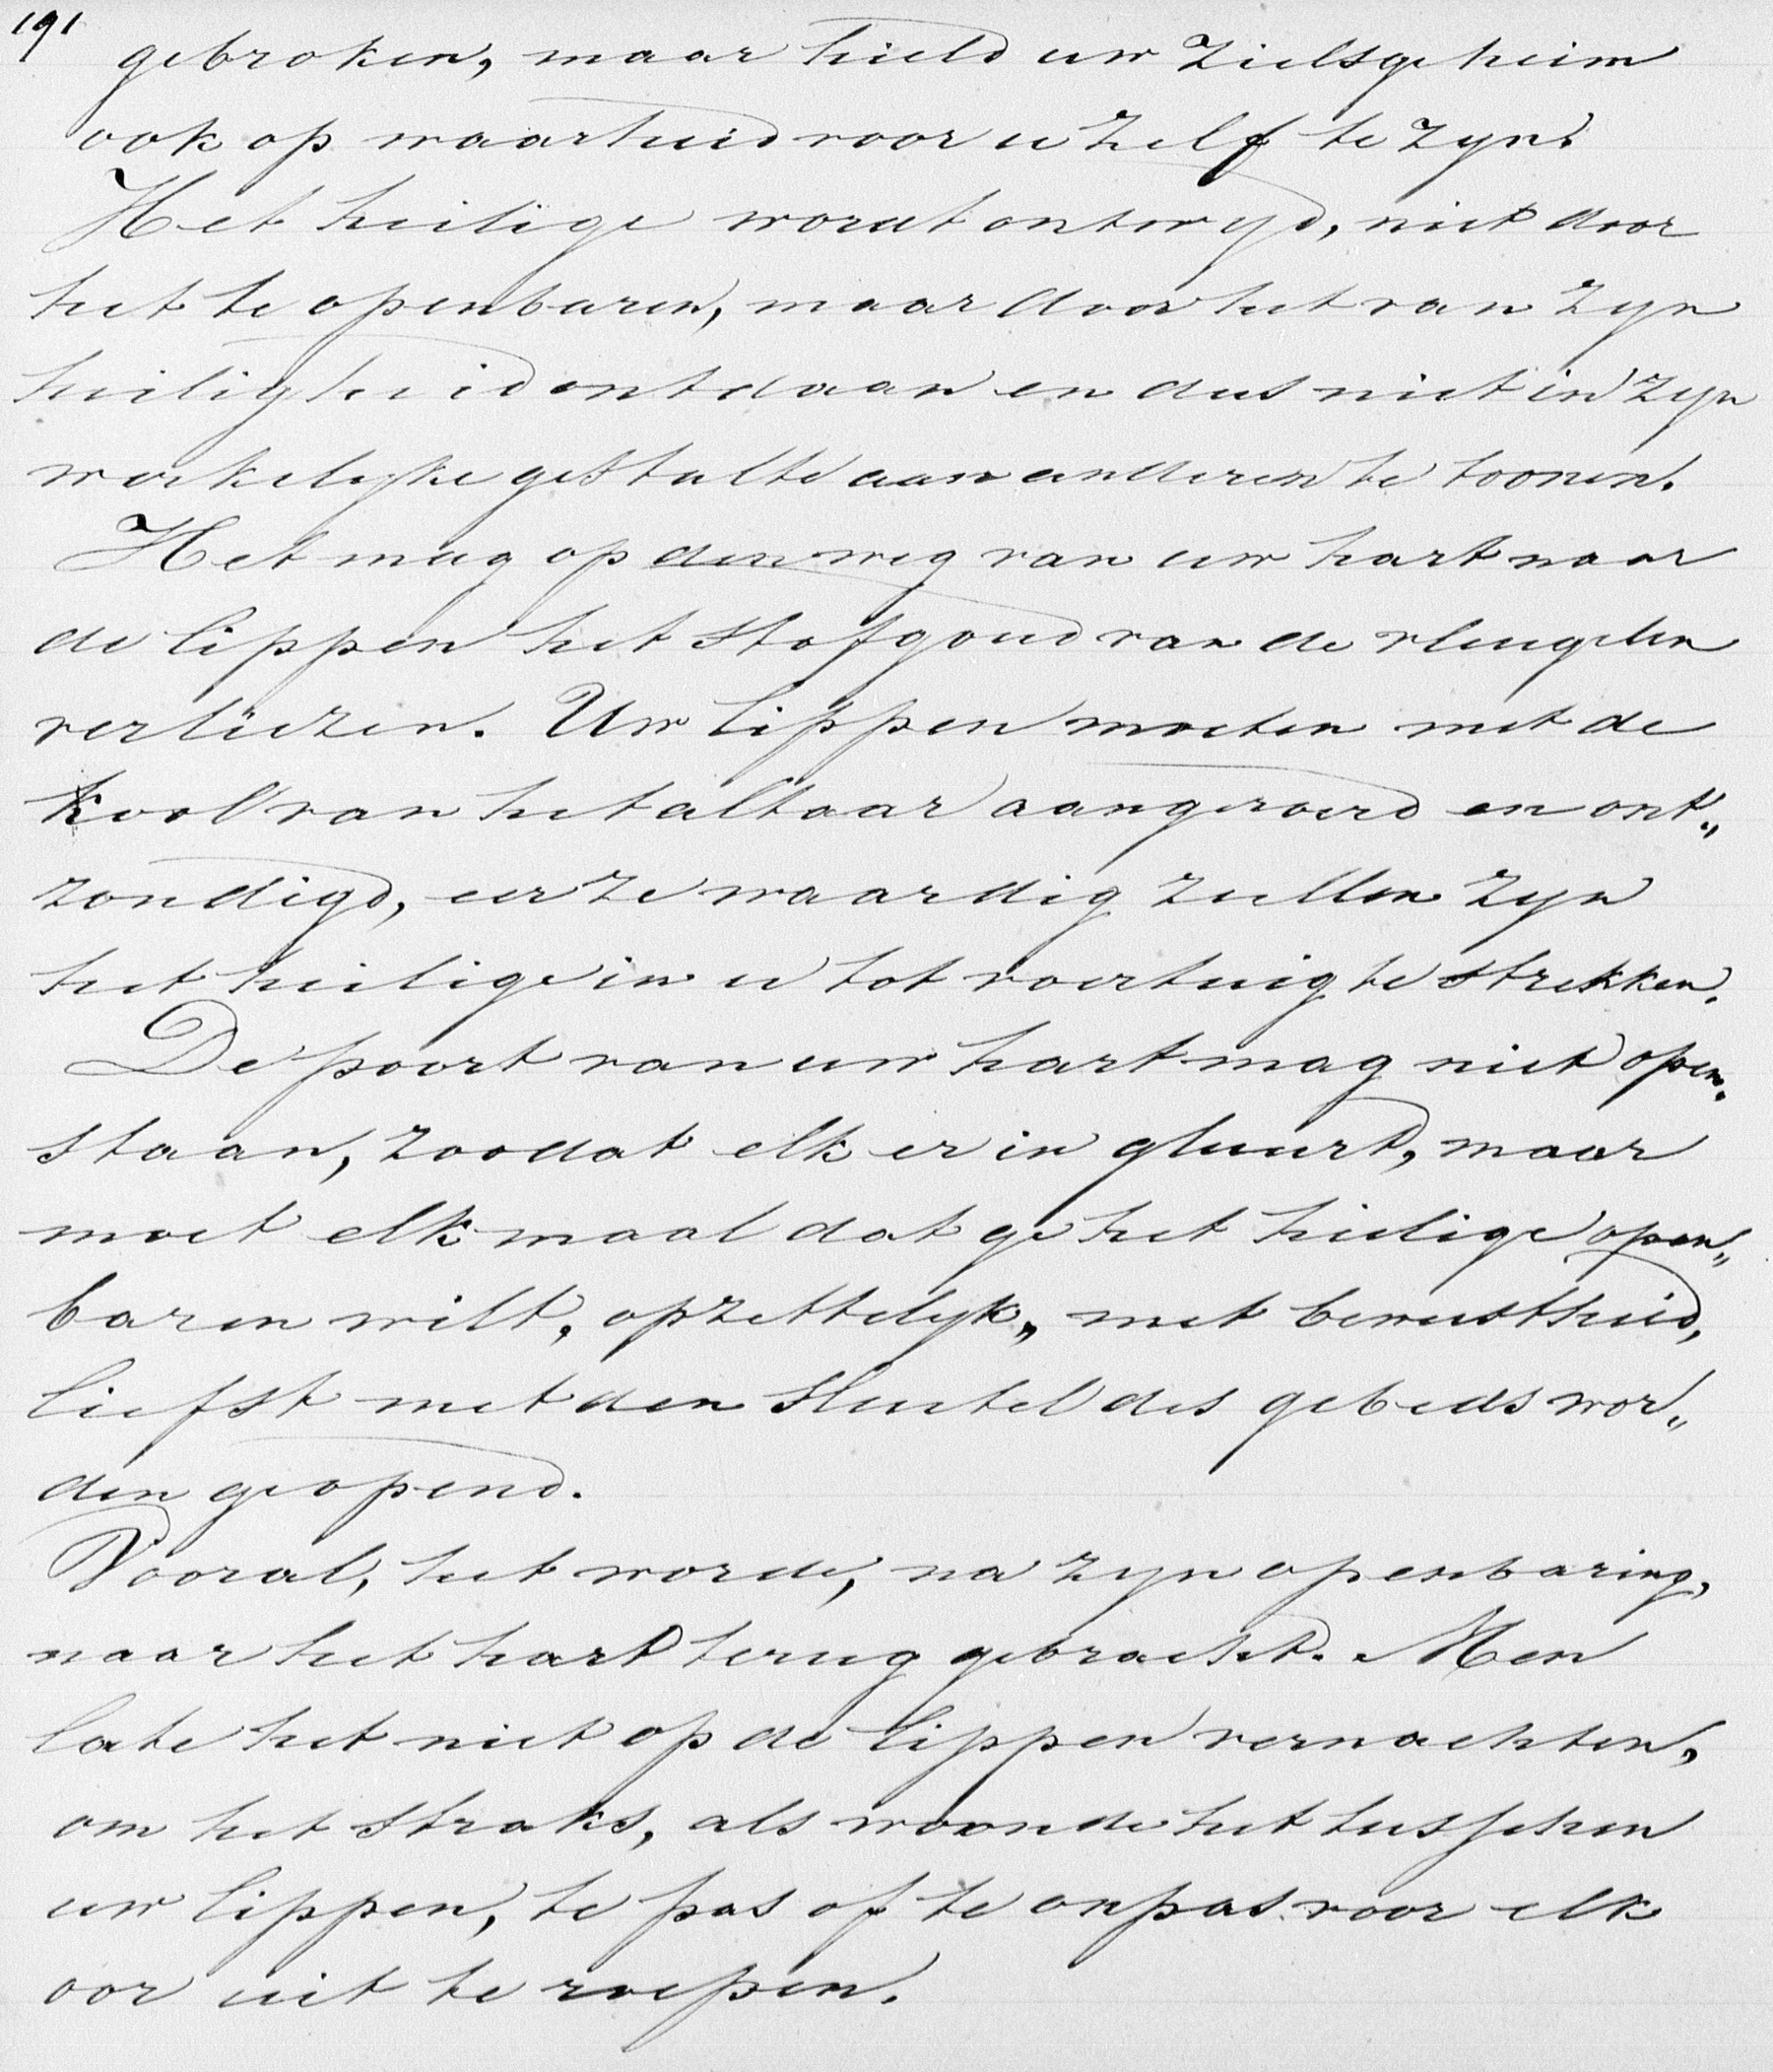 191
gebroken, maar hield uw zielsgeheim
ook op waarheid voor u zelf te zyn.
Het heilige wordt ontwyd, niet door
het te openbaren, maar door het van zyn
heiligheid ontdaan en dus niet in zyn
werkelyke gestalte aan anderen te toonen.
Het mag op den weg van uw hart naar
de lippen het stofgoud van de vleugelen
verliezen. Uw lippen moeten met de
kool van het altaar aangeroerd en ont„
zondigd, eer ze waardig zullen zyn
het heilige in u tot voertuig te strekken.
De poort van uw hart mag niet open„
staan, zoodat elk er in gluurt, maar
moet elk maal dat ge het heilige open„
baren wilt, opzettelyk, met bewustheid,
liefst met den sleutel des gebeds wor„
den geopend.
Vooral, het worde, na zyn openbaring,
naar het hart terug gebracht. Men
late het niet op de lippen vernachten,
om het straks, als woonde het tusschen
uw lippen, te pas of te onpas voor elk
oor uit te roepen.